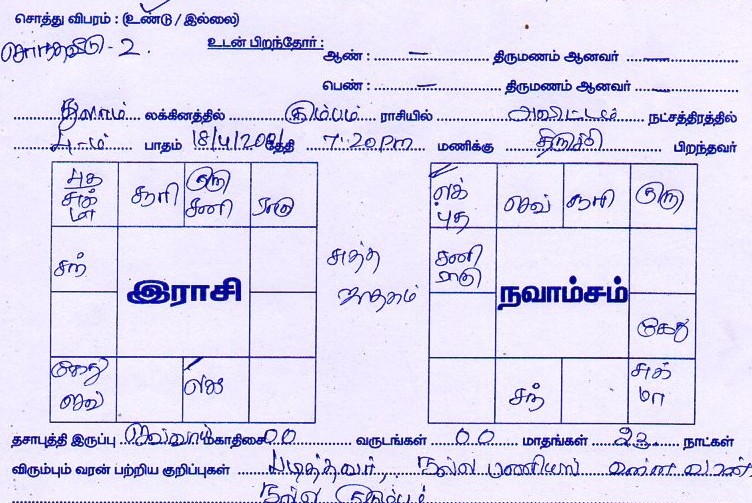 சொத்து விபரம் : (உண்டு / இல்லை)
சொந்தவீடு - 2. உடன் பிறந்தோர் : ஆண் : — திருமணம் ஆனவர் —
பெண் : — திருமணம் ஆனவர் —
துலாம் லக்கினத்தில் கும்பம் ராசியில் அவிட்டம் நட்சத்திரத்தில்
4-ம் பாதம் 18/4/2001 தேதி 7.20 Pm மணிக்கு திருச்சி பிறந்தவர்
புத சுக் மா சூரி குரு சனி ராகு
சந்
இராசி
கேது செவ் லக்
சுத்த ஜாதகம்
லக் புத செவ் சூரி குரு
சனி ராகு
நவாம்சம்
கேது
சந் சுக் மா
தசாபுத்தி இருப்பு செவ்வாய் மகாதிசை 00 வருடங்கள் 00 மாதங்கள் 23 நாட்கள்
விரும்பும் வரன் பற்றிய குறிப்புகள் படித்தவர், நல்ல பணியில் உள்ள வரன்
நல்ல குடும்பம்